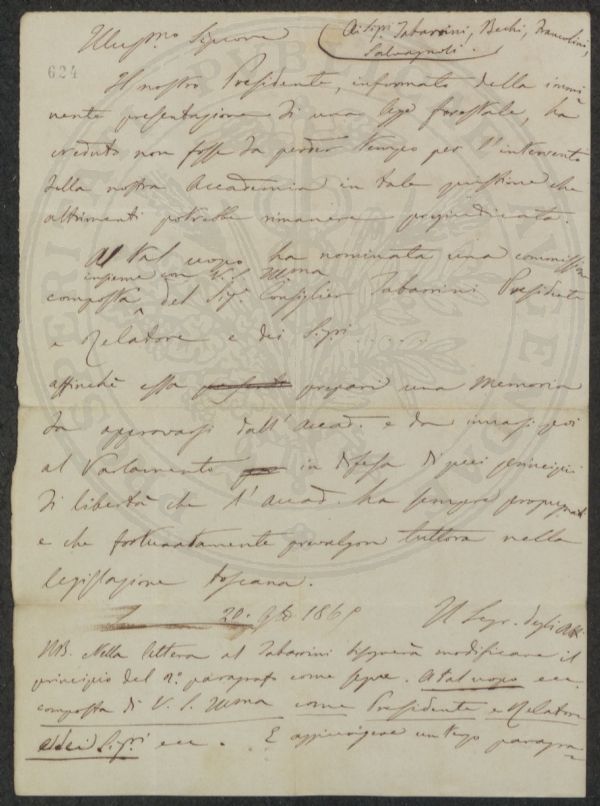 Illust.mo Signore
Ai Sigri Tabarrini, Bechi, Francolini,
Salvagnoli.
624
Il nostro Presidente, informato della immi
nente presentazione di una legge forestale, ha
creduto non fosse da perder tempo per l'intervento
della nostra Accademia in tale questione che
altrimenti potrebbe rimanere pregiudicata.
A tal uopo ha nominata una commissione
insieme con V. S. Illma
composta del Sig. Consiglier Tabarrini Presidente
e Relatore e dei Sigri
affinchè essa prepari una Memoria
da approvarsi dall'Accad. e da inviarsi poi
al Parlamento in difesa di quei principii
di libertà che l'Accad. ha sempre propugnat
e che fortunatamente prevalgon tuttora nella
legislazione toscana.
20. 9bre 186
Il Segr. degli Atti
NB. Nella lettera al Tabarrini bisognerà modificare il
principio del 2º paragrafo come segue. A tal uopo ecc.
composta di V. S. Illma come Presidente e Relatore
e dei Sigri ecc. E aggiungere un terzo paragra